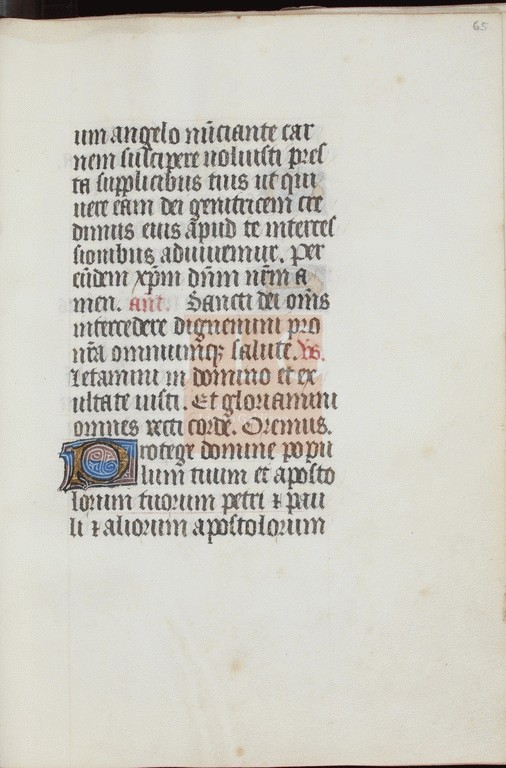 65
um angelo nūciante car
nem suscipere uoluisti pres
ta supplicibus tuis ut qui
uere eam dei genitricem cre
dimus eius apud te interces
sionibus adiuuemur. Per
eūdem xp̄m dn̄m nr̄m a
men. ant. Sancti dei om̄s
intercedere dignemini pro
nr̄a omniumq̄ salute. Vs.
Letamini in domino et ex
ultate iusti. Et gloriamini
omnes recti corde. Oremus.
Protege domine popu
lum tuum et aposto
lorum tuorum petri ⁊ pau
li ⁊ aliorum apostolorum